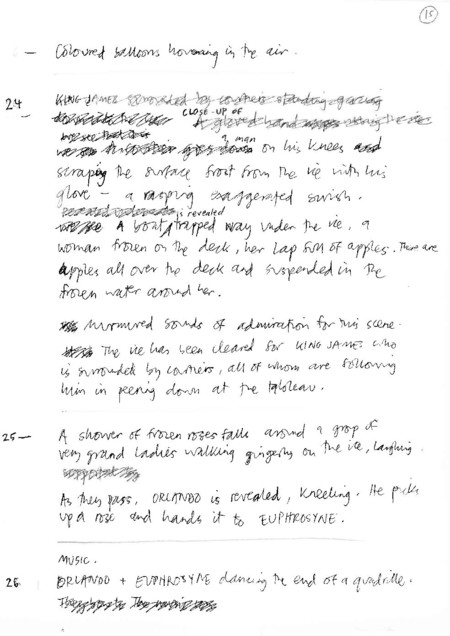 15
— Coloured balloons hovering in the air.
24 KING JAMES surrounded by courtiers standing gazing
CLOSE-UP OF
A gloved hand
a man
on his knees
scraping the surface frost from the ice with his
glove — a rasping exaggerated swish.
is revealed
A boat, trapped way under the ice, a
woman frozen on the deck, her lap full of apples. There are
apples all over the deck and suspended in the
frozen water around her.
Murmured sounds of admiration for this scene.
The ice has been cleared for KING JAMES who
is surrounded by courtiers, all of whom are following
him in peering down at the tableau.
25 — A shower of frozen roses falls around a group of
very grand Ladies walking gingerly on the ice, laughing.
As they pass, ORLANDO is revealed, kneeling. He picks
up a rose and hands it to EUPHROSYNE.
MUSIC.
26. ORLANDO + EUPHROSYNE dancing the end of a quadrille.